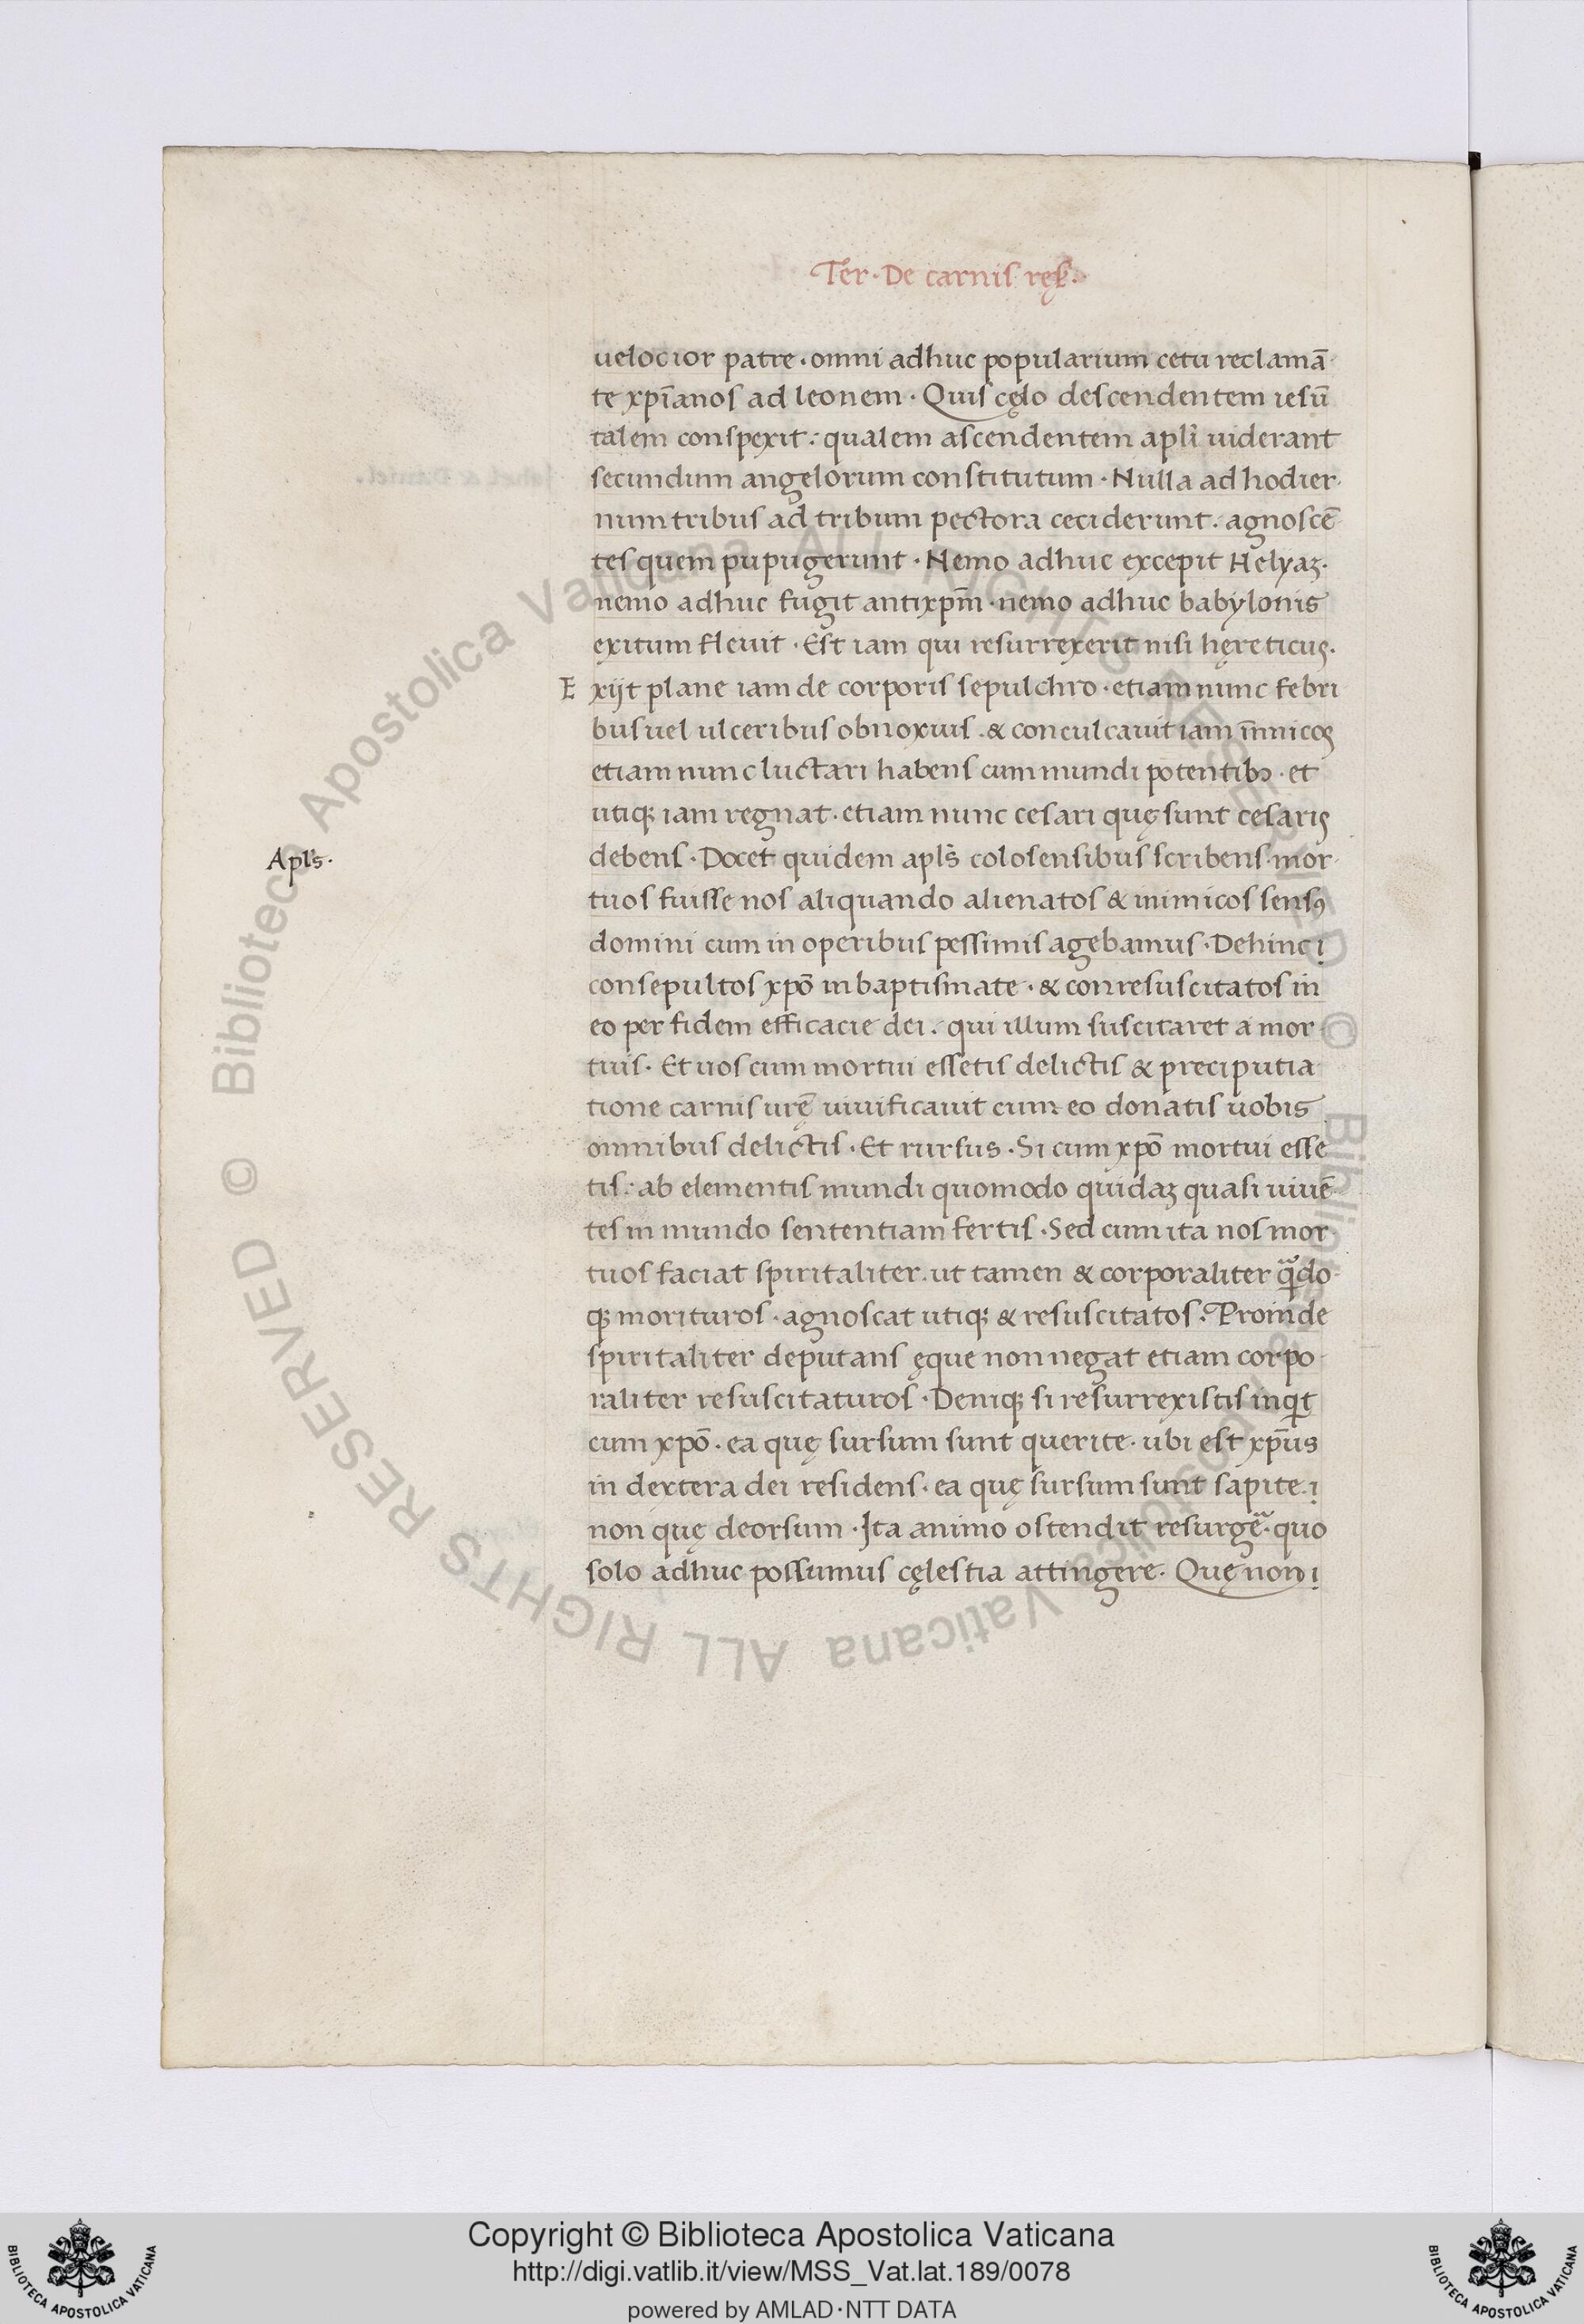 Ter · De carnis ręſ.
uelocior patre · omni adhuc popularium cetu reclamā
te xp̄ianos ad leonem · Quis cęlo descendentem iesū
talem conspexit : qualem ascendentem apl̄i uiderant
secundum angelorum constitutum · Nulla ad hodier
num tribus ad tribum pectora ceciderunt . agnoscē
tes quem pupugerunt · Nemo adhuc excepit Helyaʒ .
nemo adhuc fugit antixp̄m · nemo adhuc babylonis
exitum fleuit · Est iam qui resurrexerit nisi hęreticus .
Exijt plane iam de corporis sepulchro · etiam nunc febri
bus uel ulceribus obnoxius . & conculcauit iam īnnicos
etiam nunc luctari habens cum mundi potentibꝰ · et
utiqꝫ iam regnat · etiam nunc cesari quę sunt cesaris
Apl̄s ·
debens · Docet quidem apl̄s colosensibus scribens · mor
tuos fuisse nos aliquando alienatos & inimicos sensꝰ
domini cum in operibus pessimis agebamus · Dehinc
consepultos xp̄o in baptismate · & conresuscitatos in
eo per fidem efficacie dei . qui illum suscitaret a mor
tuis · Et uos cum mortui essetis delictis & preciputia
tione carnis ur̄ę uiuificauit cum eo donatis uobis
omnibus delictis · Et rursus · Si cum xp̄o mortui esse
tis : ab elementis mundi quomodo quidaʒ quasi uiuē
tes in mundo sententiam fertis · Sed cum ita nos mor
tuos faciat spiritaliter . ut tamen & corporaliter qᷓdo
qꝫ morituros · agnoscat utiqꝫ & resuscitatos · Proinde
spiritaliter deputans ęque non negat etiam corpo
raliter resuscitaturos · Deniqꝫ si resurrexistis inqͥt
cum xp̄o · ea quę sursum sunt querite · ubi est xp̄us
in dextera dei residens · ea quę sursum sunt sapite .
non quę deorsum · Ita animo ostendit resurgēᷓ · quo
solo adhuc possumus cęlestia attingere · Quę non
© Biblioteca Apostolica Vaticana ALL RIGHTS RESERVED © Biblioteca Apostolica Vaticana ALL RIGHTS RESERVED
Copyright © Biblioteca Apostolica Vaticana
http://digi.vatlib.it/view/MSS_Vat.lat.189/0078
powered by AMLAD·NTT DATA
BIBLIOTECA APOSTOLICA VATICANA
BIBLIOTECA APOSTOLICA VATICANA